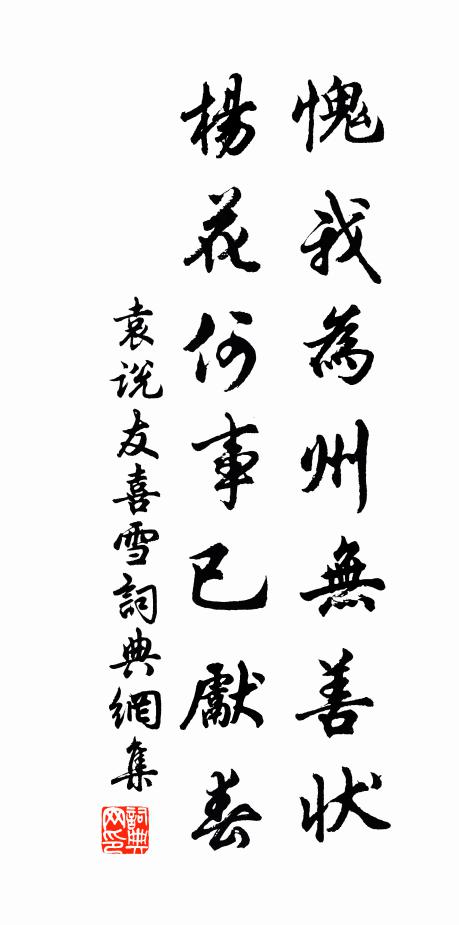 愧我為州無善状
楊花何事已獻春
袁説友喜雪詞典網集
詞典网印